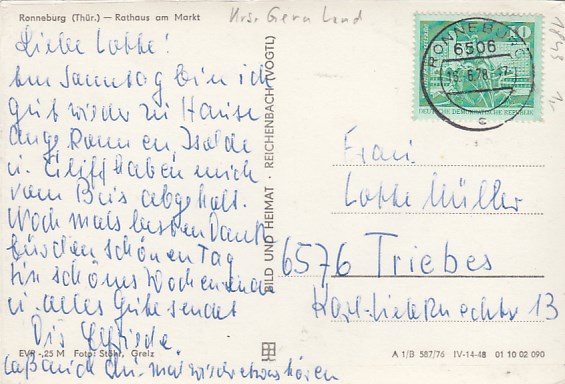 Ronneburg (Thür.) — Rathaus am Markt
Krs. Gera Land
Liebe Lotte!
Am Samstag bin ich
gut wieder zu Hause
angekommen, Isolde
u. haben mich
vom Bus abgeholt.
Nochmals besten Dank
für den schönen Tag
Ein schönes Wochenende
u. alles Gute sendet
Dir Elfriede.
laß mich mal wieder etwas hören
EVP -,25 M Foto: Stöhr, Greiz
BILD UND HEIMAT · REICHENBACH (VOGTL)
RONNEBURG
6506
6.78
c
10
DEUTSCHE DEMOKRATISCHE REPUBLIK
1843
Frau
Lotte Müller
6576 Triebes
Karl-Liebknechtstr 13
A 1/B 587/76 IV-14-48 01 10 02 090